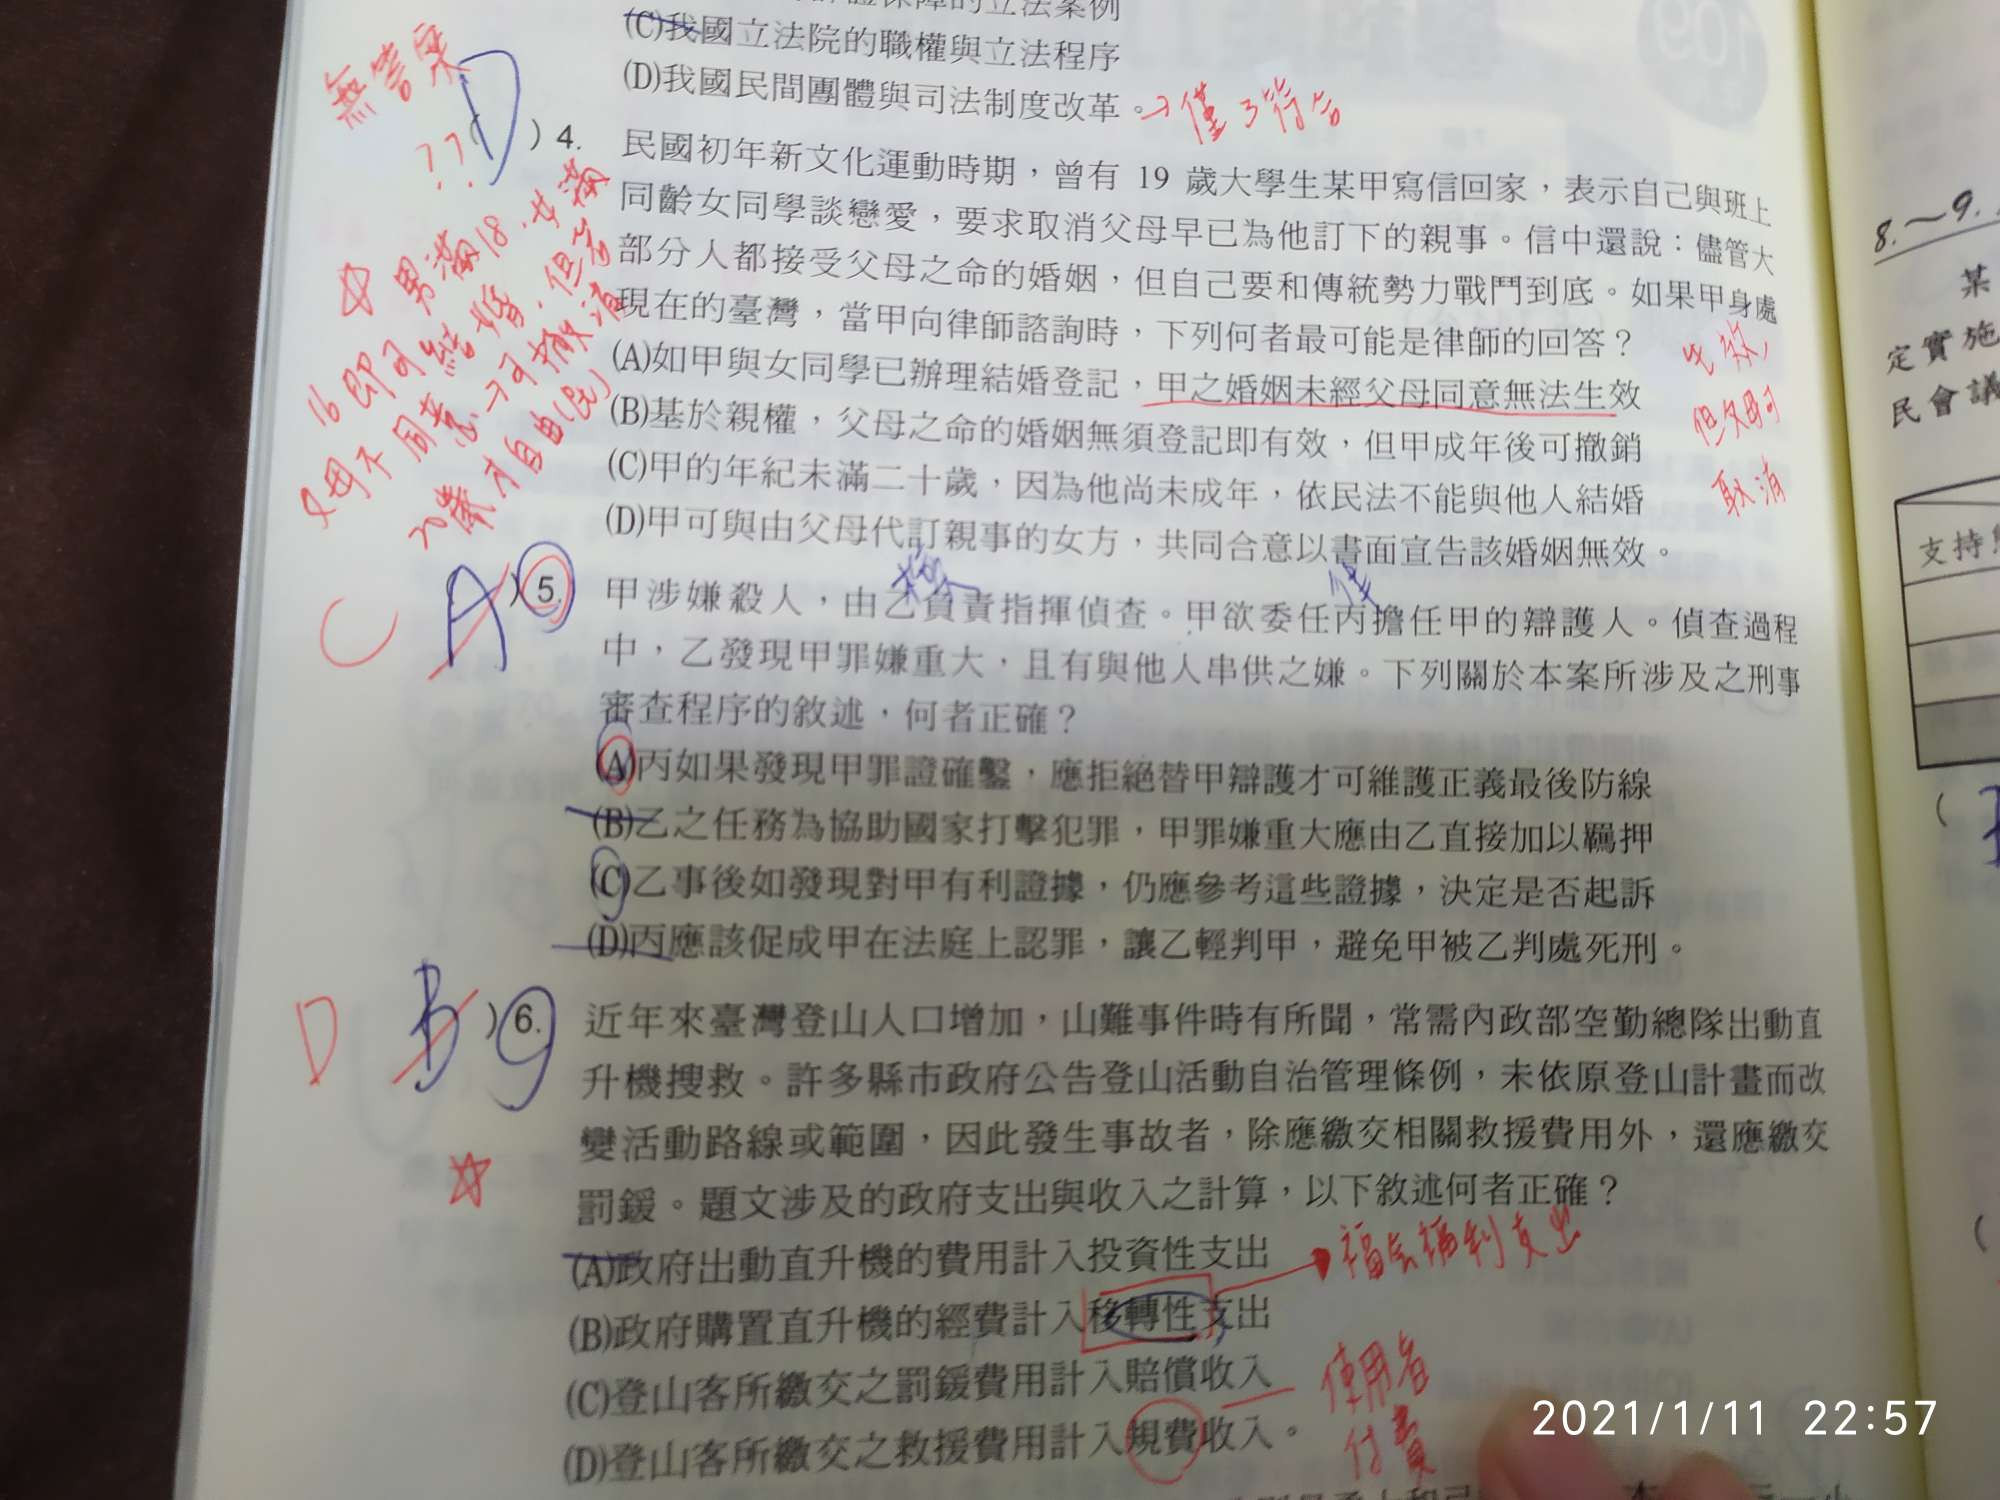 109
(C)我國立法院的職權與立法程序
(D)我國民間團體與司法制度改革。
→僅了符合
無答案
??
D
)4.
民國初年新文化運動時期，曾有 19 歲大學生某甲寫信回家，表示自己與班上
同齡女同學談戀愛，要求取消父母早已為他訂下的親事。信中還說：儘管大
部分人都接受父母之命的婚姻，但自己要和傳統勢力戰鬥到底。如果甲身處
現在的臺灣，當甲向律師諮詢時，下列何者最可能是律師的回答？
(A)如甲與女同學已辦理結婚登記，甲之婚姻未經父母同意無法生效
(B)基於親權，父母之命的婚姻無須登記即有效，但甲成年後可撤銷
(C)甲的年紀未滿二十歲，因為他尚未成年，依民法不能與他人結婚
(D)甲可與由父母代訂親事的女方，共同合意以書面宣告該婚姻無效。
☆ 男滿18.女滿
16即可結婚.但若
父母不同意→可撤消
20歲才自由(民)
生效,
但父母可
取消
C
A
)5.
甲涉嫌殺人，由乙負責指揮偵查。甲欲委任丙擔任甲的辯護人。偵查過程
中，乙發現甲罪嫌重大，且有與他人串供之嫌。下列關於本案所涉及之刑事
審查程序的敘述，何者正確？
(A)丙如果發現甲罪證確鑿，應拒絕替甲辯護才可維護正義最後防線
(B)乙之任務為協助國家打擊犯罪，甲罪嫌重大應由乙直接加以羈押
(C)乙事後如發現對甲有利證據，仍應參考這些證據，決定是否起訴
(D)丙應該促成甲在法庭上認罪，讓乙輕判甲，避免甲被乙判處死刑。
D
B
)6.
近年來臺灣登山人口增加，山難事件時有所聞，常需內政部空勤總隊出動直
升機搜救。許多縣市政府公告登山活動自治管理條例，未依原登山計畫而改
變活動路線或範圍，因此發生事故者，除應繳交相關救援費用外，還應繳交
罰鍰。題文涉及的政府支出與收入之計算，以下敘述何者正確？
☆
(A)政府出動直升機的費用計入投資性支出
(B)政府購置直升機的經費計入移轉性支出
(C)登山客所繳交之罰鍰費用計入賠償收入
(D)登山客所繳交之救援費用計入規費收入。
使用者
付費
8.～9.
某
定實施
民會議
支持
2021/1/11 22:57